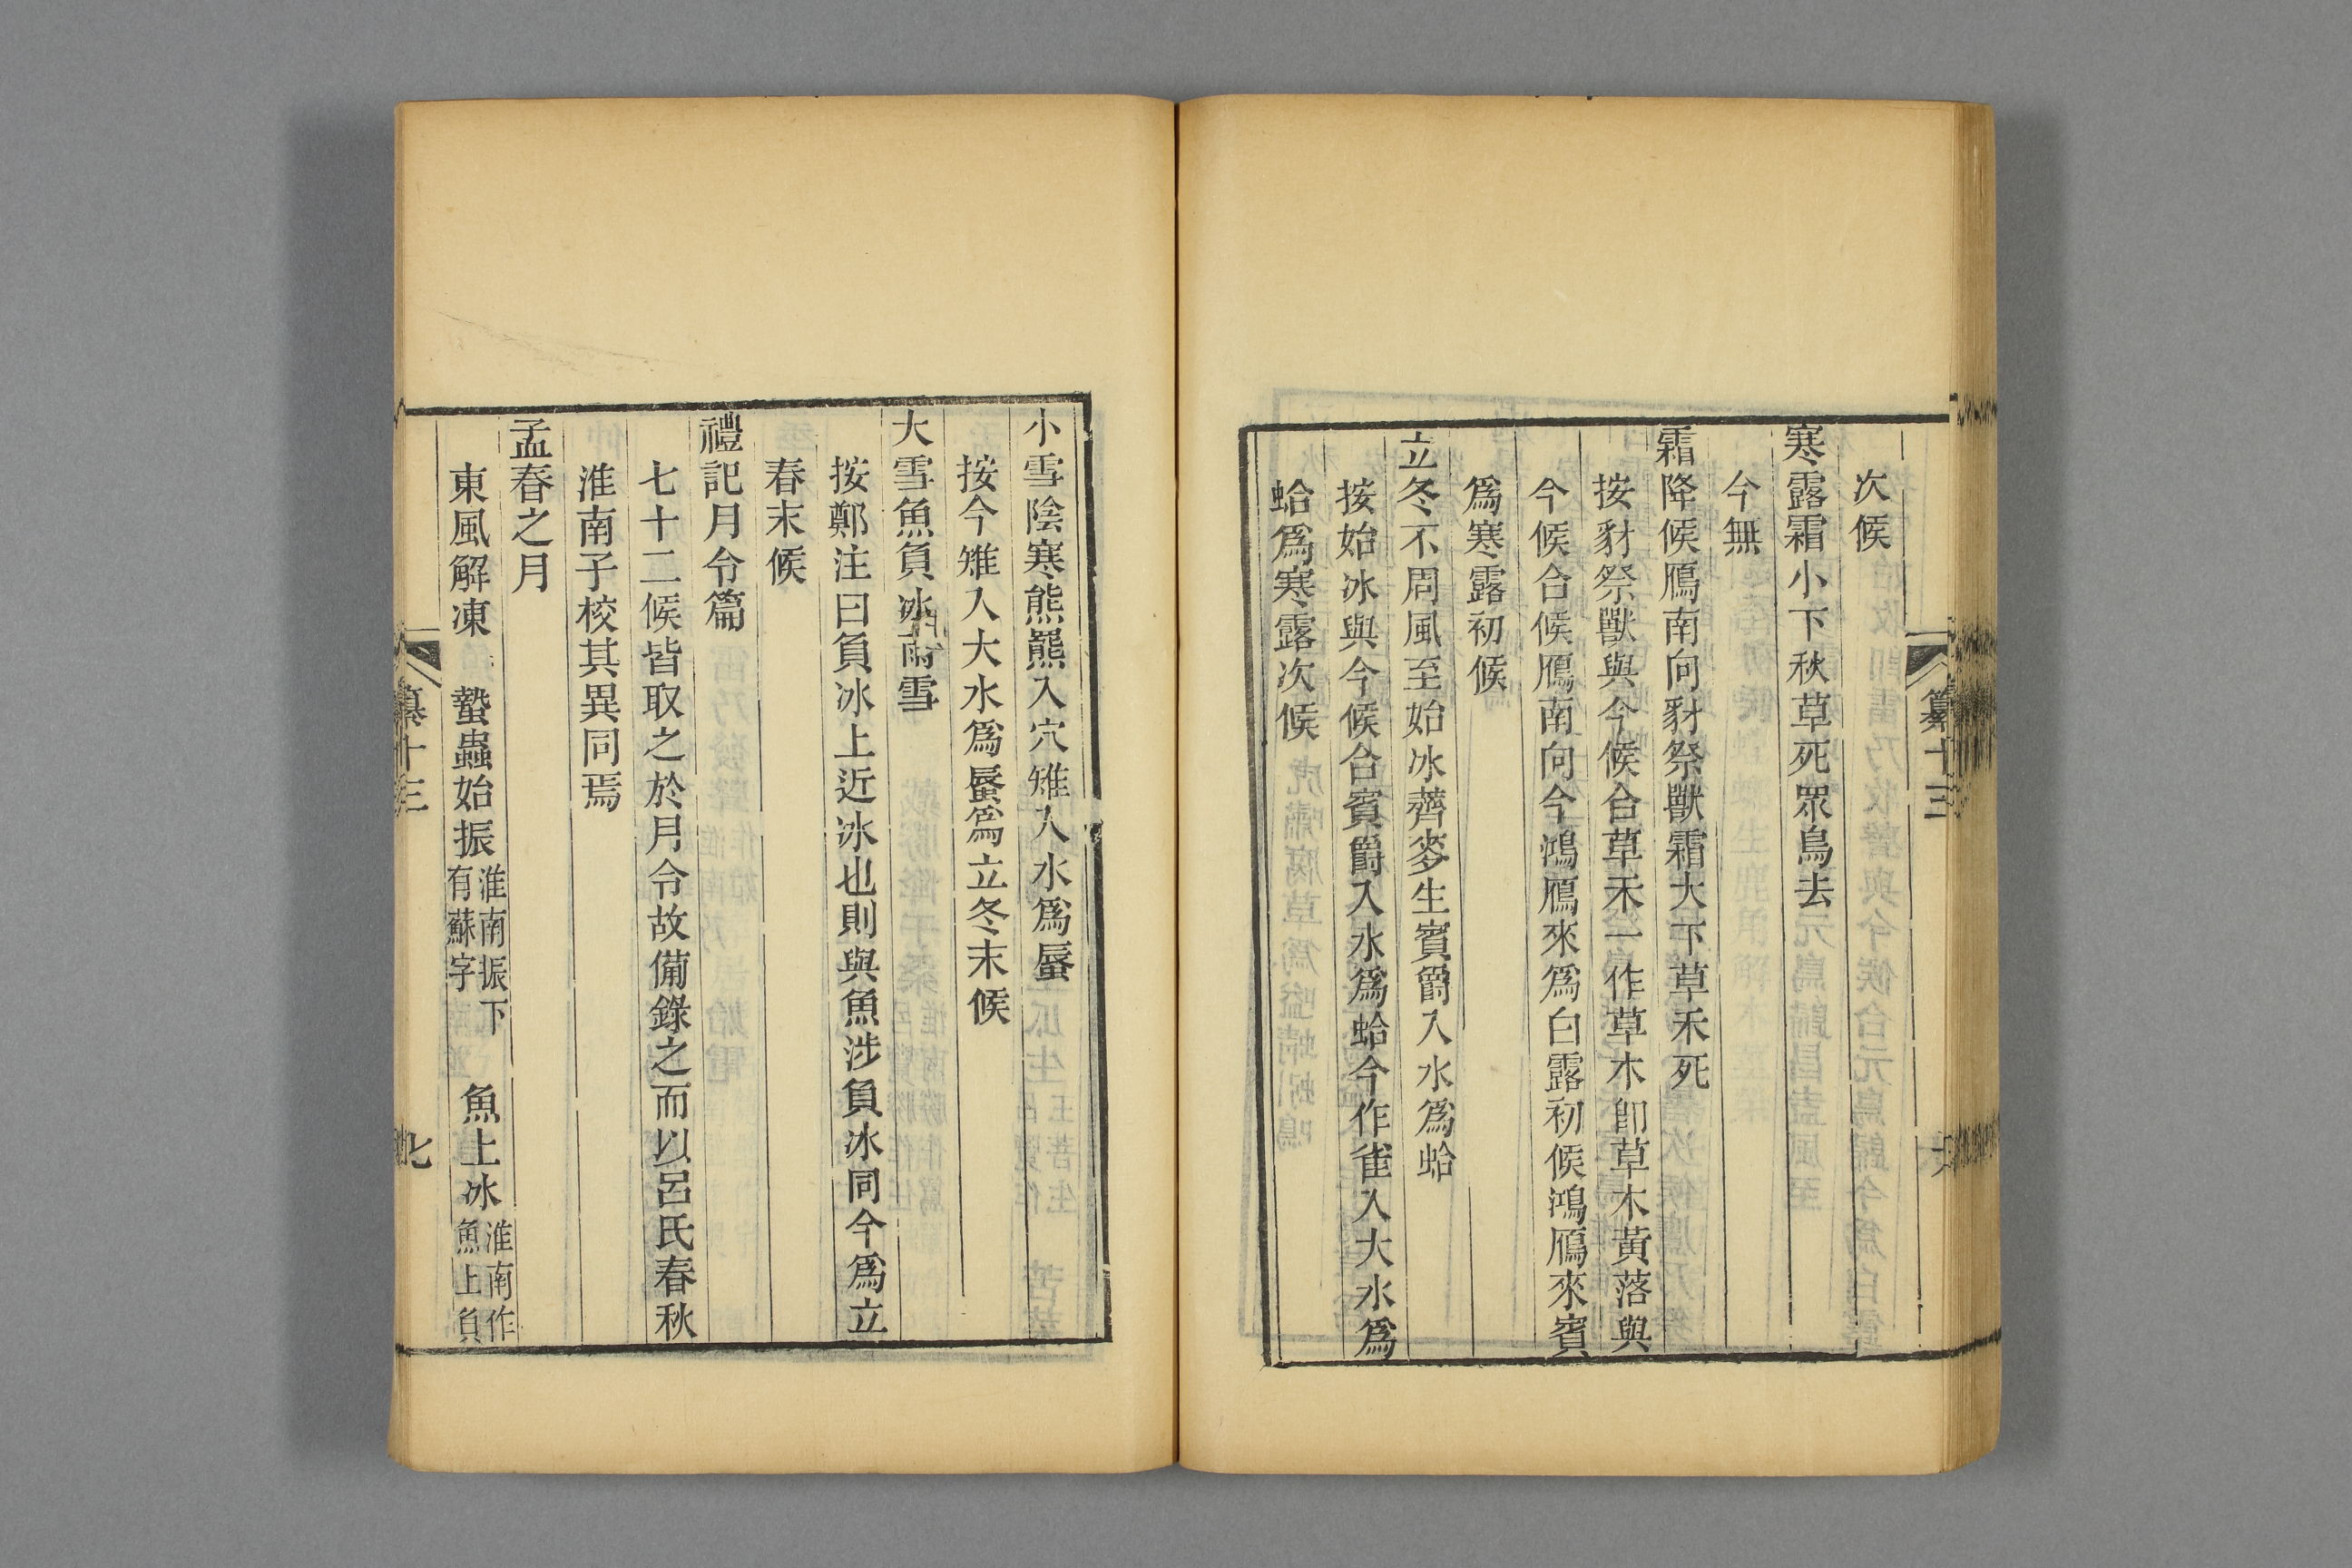 次候
寒露霜小下秋草死眾鳥去
今無
霜降候鴈南向豺祭獸霜大下草禾死
按豺祭獸與今候合草禾一作草木卽草木黃落與
今候合候鴈南向今鴻鴈來爲白露初候鴻鴈來賓
爲寒露初候
立冬不周風至始冰薺麥生賓爵入水爲蛤
按始冰與今候合賓爵入水爲蛤今作雀入大水爲
蛤爲寒露次候
纂十三
小雪陰寒熊羆入穴雉入水爲蜃
按今雉入大水爲蜃爲立冬末候
大雪魚負冰雨雪
按鄭注曰負冰上近冰也則與魚涉負冰同今爲立
春末候
禮記月令篇
七十二候皆取之於月令故備錄之而以呂氏春秋
淮南子校其異同焉
孟春之月
東風解凍 蟄蟲始振淮南振下有蘇字 魚上冰淮南作魚上負
纂十三 七